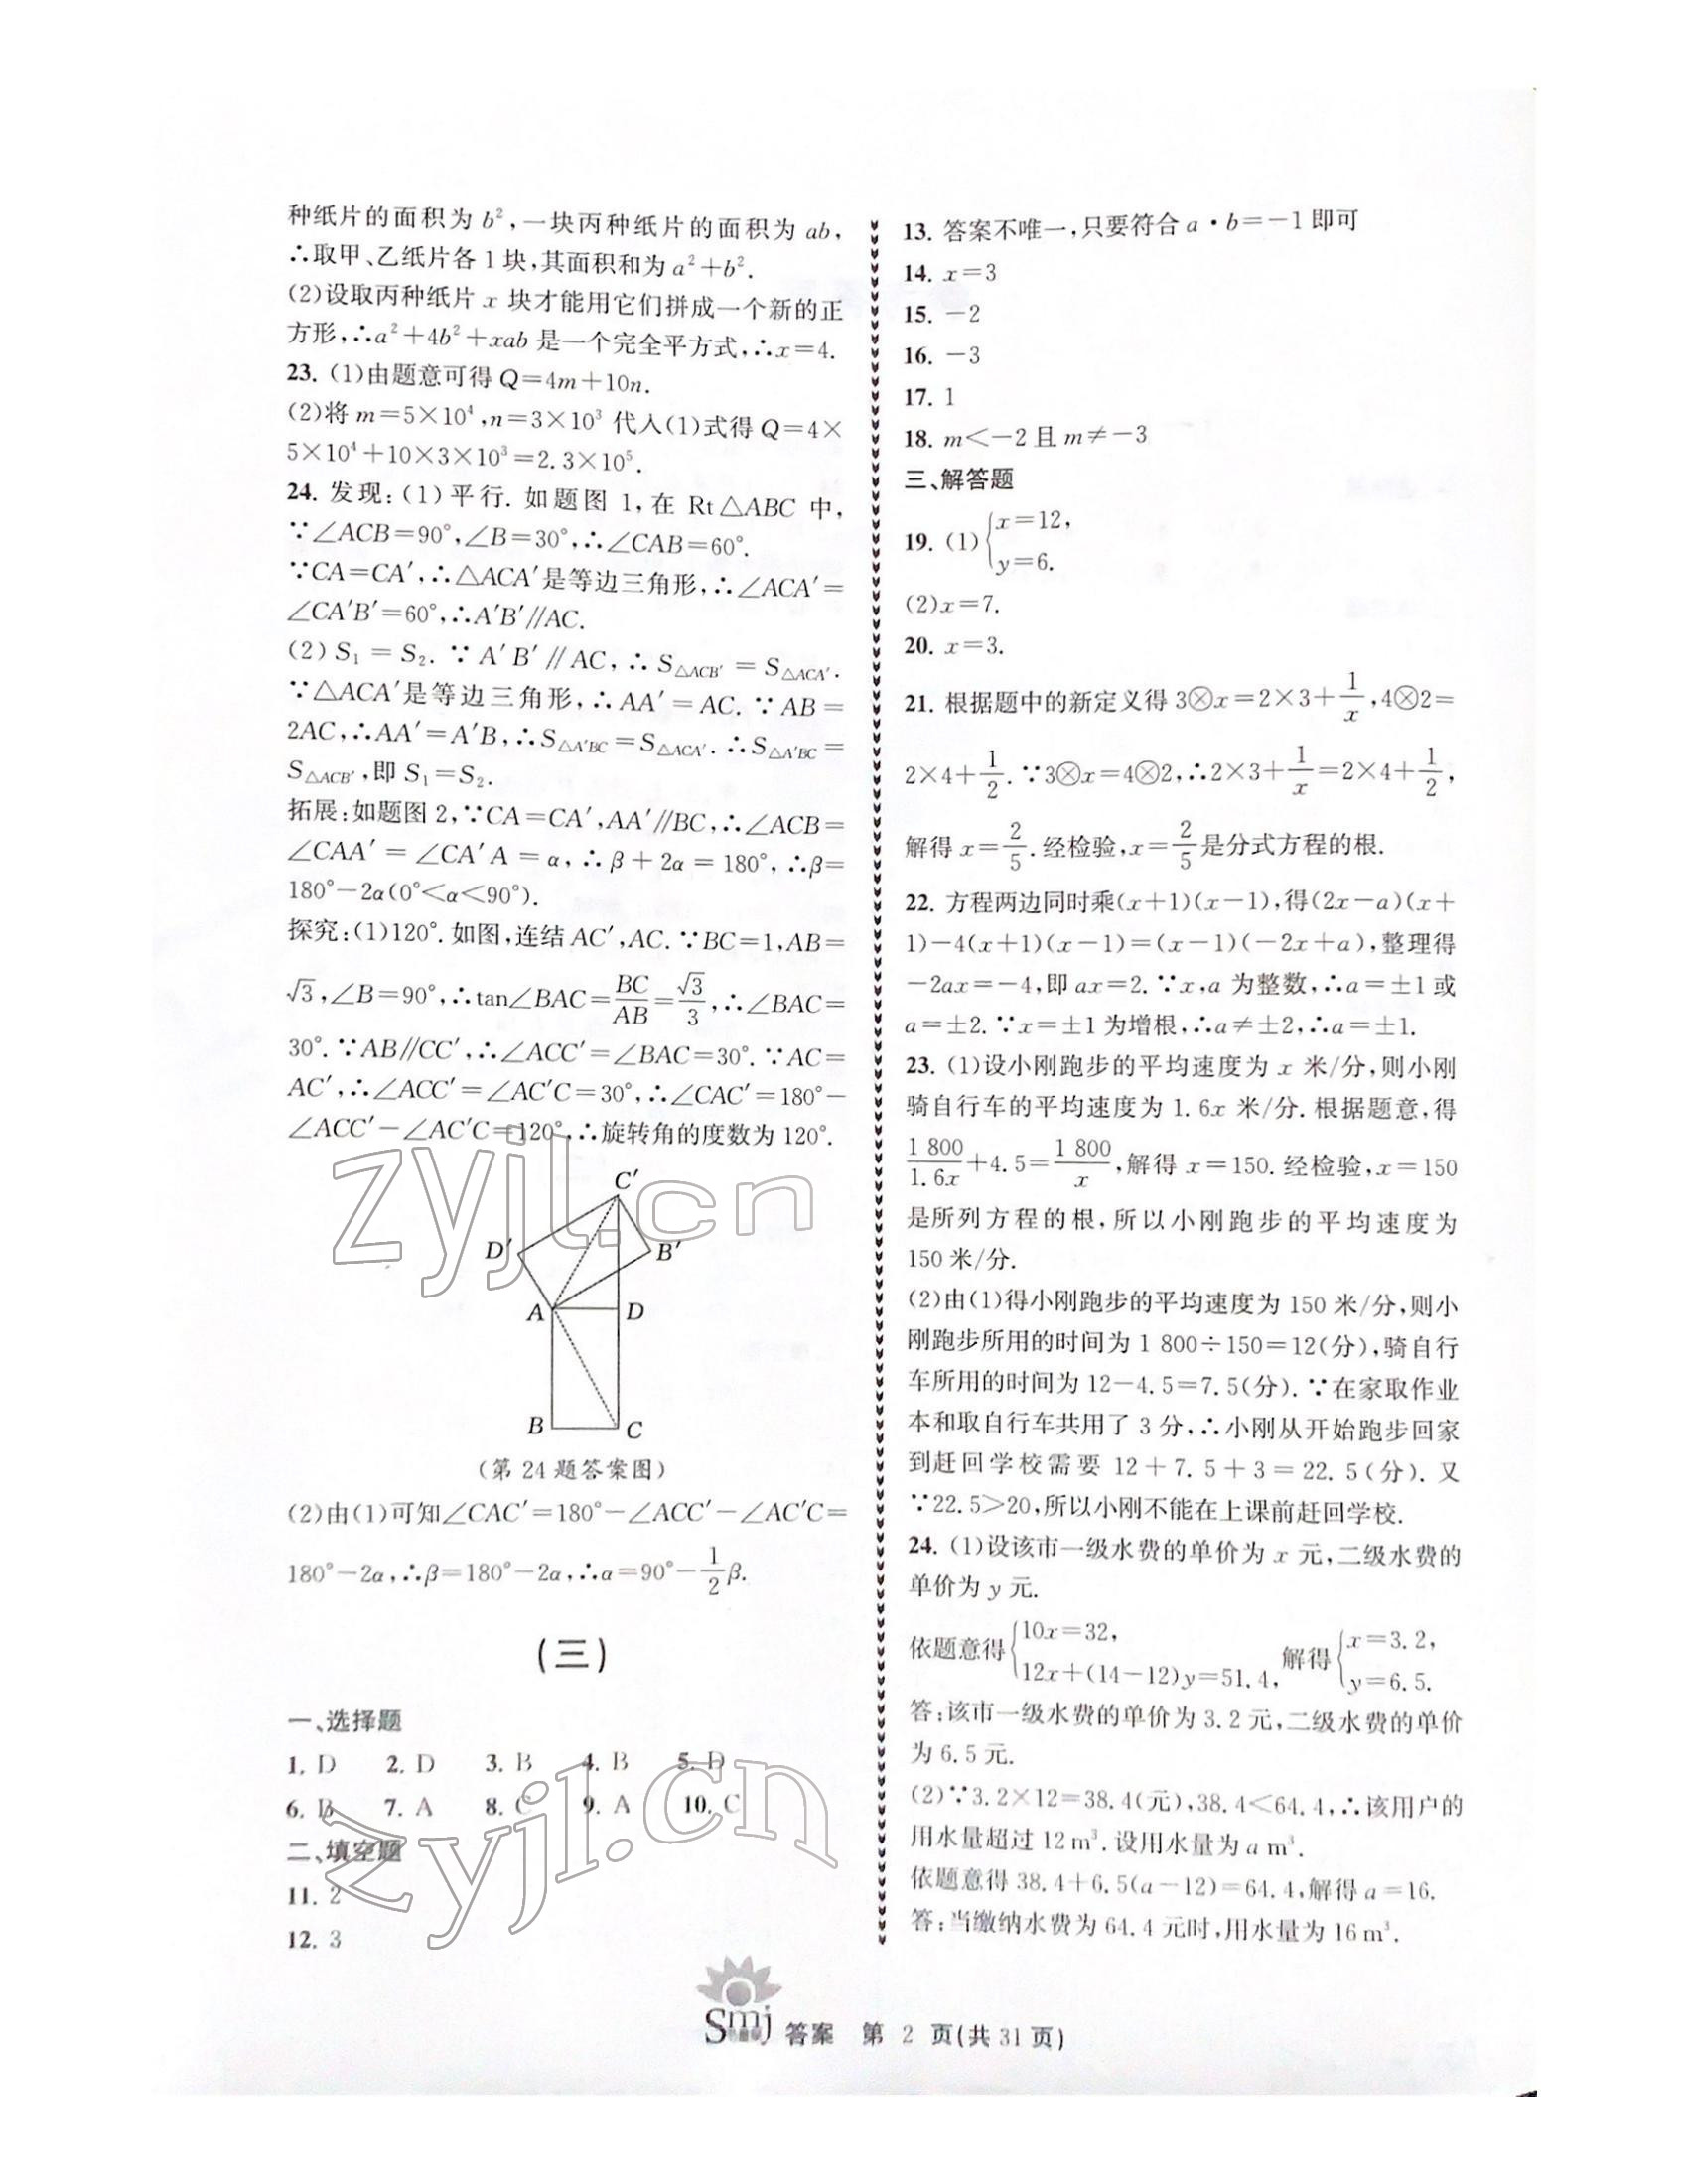 种纸片的面积为 b²,一块丙种纸片的面积为 ab,
∴取甲、乙纸片各 1 块,其面积和为 a²+b².
(2)设取丙种纸片 x 块才能用它们拼成一个新的正
方形,∴a²+4b²+xab 是一个完全平方式,∴x=4.
23. (1)由题意可得 Q=4m+10n.
(2)将 m=5×10⁴,n=3×10³ 代入(1)式得 Q=4×
5×10⁴+10×3×10³=2.3×10⁵.
24. 发现:(1)平行. 如题图 1,在 Rt△ABC 中,
∵∠ACB=90°,∠B=30°,∴∠CAB=60°.
∵CA=CA′,∴△ACA′是等边三角形,∴∠ACA′=
∠CA′B′=60°,∴A′B′∥AC.
(2) S₁=S₂. ∵A′B′∥AC,∴S△ACB′=S△ACA′.
∵△ACA′是等边三角形,∴AA′=AC. ∵AB=
2AC,∴AA′=A′B,∴S△A′BC=S△ACA′. ∴S△A′BC=
S△ACB′,即 S₁=S₂.
拓展:如题图 2,∵CA=CA′,AA′∥BC,∴∠ACB=
∠CAA′=∠CA′A=α,∴β+2α=180°,∴β=
180°-2α(0°<α<90°).
探究:(1)120°.如图,连结 AC′,AC.∵BC=1,AB=
√3,∠B=90°,∴tan∠BAC=BC/AB=√3/3,∴∠BAC=
30°.∵AB∥CC′,∴∠ACC′=∠BAC=30°.∵AC=
AC′,∴∠ACC′=∠AC′C=30°,∴∠CAC′=180°-
∠ACC′-∠AC′C=120°,∴旋转角的度数为 120°.
C′
D′
B′
A
D
B
C
(第 24 题答案图)
(2)由(1)可知∠CAC′=180°-∠ACC′-∠AC′C=
180°-2α,∴β=180°-2α,∴α=90°-1/2β.
(三)
一、选择题
1. D 2. D 3. B 4. B 5. D
6. B 7. A 8. C 9. A 10. C
二、填空题
11. 2
12. 3
13. 答案不唯一,只要符合 a·b=-1 即可
14. x=3
15. -2
16. -3
17. 1
18. m<-2 且 m≠-3
三、解答题
19. (1){x=12,
y=6.
(2)x=7.
20. x=3.
21. 根据题中的新定义得 3⊗x=2×3+1/x,4⊗2=
2×4+1/2.∵3⊗x=4⊗2,∴2×3+1/x=2×4+1/2,
解得 x=2/5.经检验,x=2/5是分式方程的根.
22. 方程两边同时乘(x+1)(x-1),得(2x-a)(x+
1)-4(x+1)(x-1)=(x-1)(-2x+a),整理得
-2ax=-4,即 ax=2.∵x,a 为整数,∴a=±1 或
a=±2.∵x=±1 为增根,∴a≠±2,∴a=±1.
23. (1)设小刚跑步的平均速度为 x 米/分,则小刚
骑自行车的平均速度为 1.6x 米/分.根据题意,得
1 800/1.6x+4.5=1 800/x,解得 x=150.经检验,x=150
是所列方程的根,所以小刚跑步的平均速度为
150 米/分.
(2)由(1)得小刚跑步的平均速度为 150 米/分,则小
刚跑步所用的时间为 1 800÷150=12(分),骑自行
车所用的时间为 12-4.5=7.5(分).∵在家取作业
本和取自行车共用了 3 分,∴小刚从开始跑步回家
到赶回学校需要 12+7.5+3=22.5(分).又
∵22.5>20,所以小刚不能在上课前赶回学校.
24. (1)设该市一级水费的单价为 x 元,二级水费的
单价为 y 元.
依题意得{10x=32, 12x+(14-12)y=51.4, 解得{x=3.2, y=6.5.
答:该市一级水费的单价为 3.2 元,二级水费的单价
为 6.5 元.
(2)∵3.2×12=38.4(元),38.4<64.4,∴该用户的
用水量超过 12 m³.设用水量为 a m³.
依题意得 38.4+6.5(a-12)=64.4,解得 a=16.
答:当缴纳水费为 64.4 元时,用水量为 16 m³.
zyjl.cn
zyjl.cn
Smj 答案 第 2 页(共 31 页)